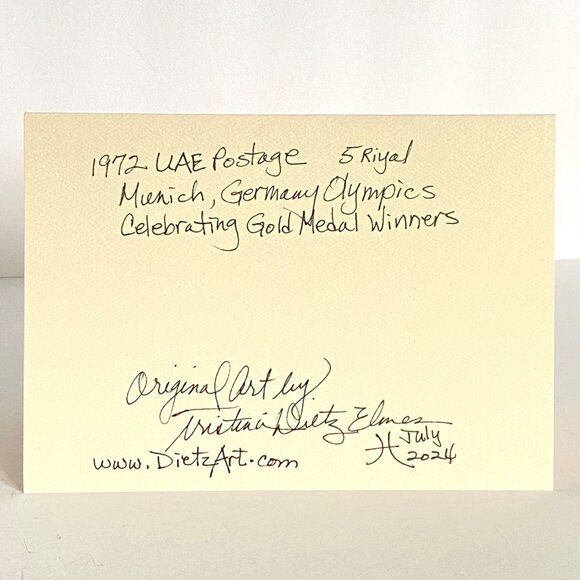 1972 UAE Postage 5 Riyal
Munich, Germany Olympics
Celebrating Gold Medal Winners
Original Art by
Kristina Dietz Elmes
July
www.DietzArt.com 2024